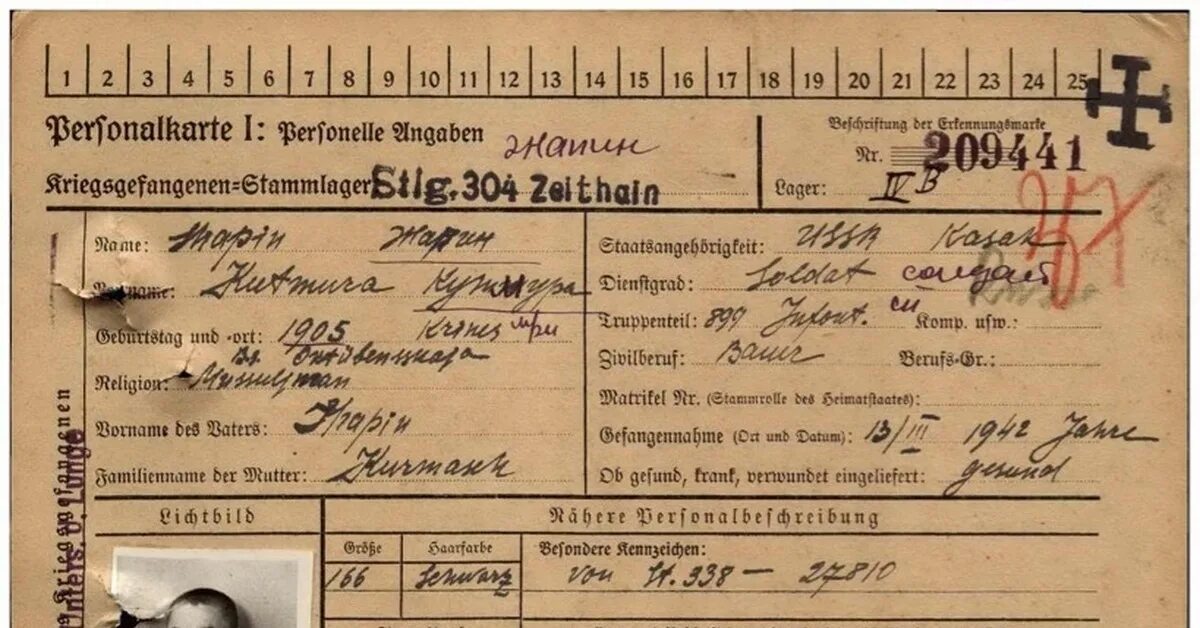 1 2 3 4 5 6 7 8 9 10 11 12 13 14 15 16 17 18 19 20 21 22 23 24 25
Personalkarte I: Personelle Angaben
Beschriftung der Erkennungsmarke
Nr. 209441
Kriegsgefangenen=Stammlager Stlg. 304 Zeithain
Lager: IV B
Name: Жарин
Staatsangehörigkeit: USSR Kasak
Vorname: Kutmura
Dienstgrad: Soldat солдат
Geburtstag und -ort: 1905
Truppenteil: 899 Infant. Komp. usw.:
Zivilberuf: Bauer Berufs-Gr.:
Religion: Musselman
Matrikel Nr. (Stammrolle des Heimatstaates):
Vorname des Vaters:
Gefangennahme (Ort und Datum): 13/III 1942 Jahre
Familienname der Mutter: Kurmasch
Ob gesund, krank, verwundet eingeliefert: gesund
Lichtbild
Nähere Personalbeschreibung
Größe
Haarfarbe
Besondere Kennzeichen:
166
Schwarz
von St. 338 — 27810